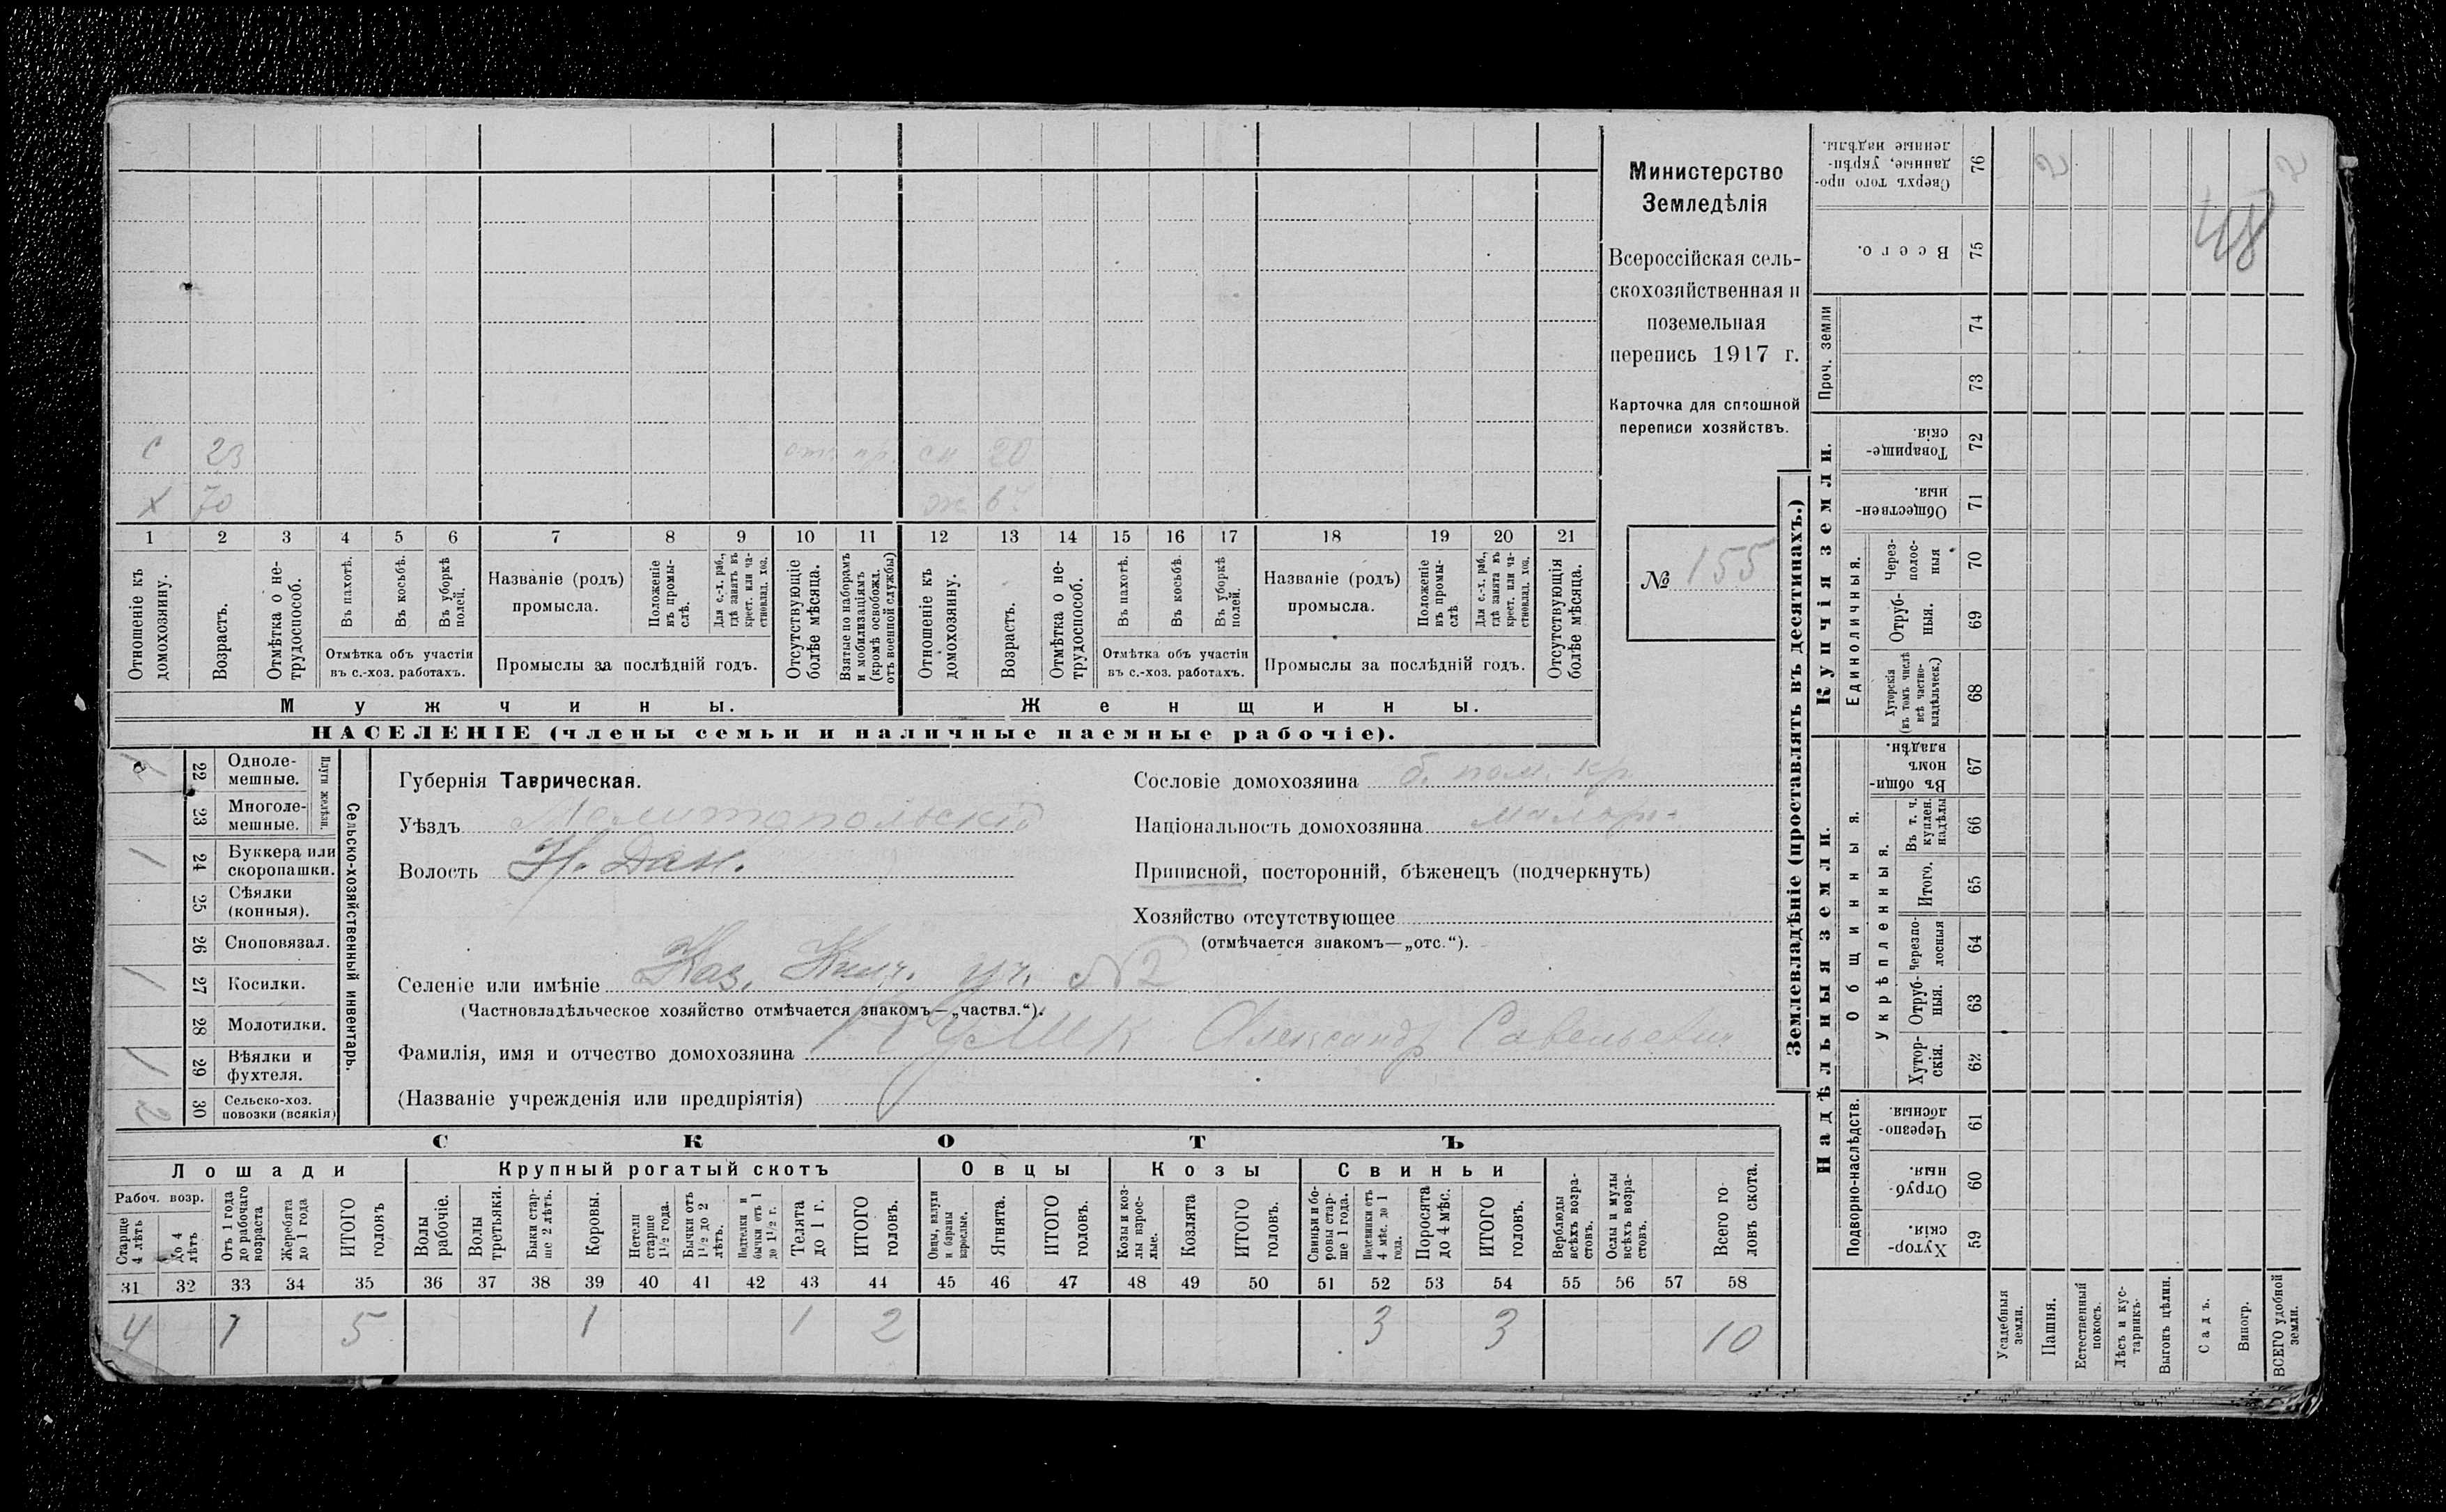 С 23 отп. пр. сн 20
Х 70 ж
1 2 3 4 5 6 7 8 9 10 11 12 13 14 15 16 17 18 19 20 21
Отношеніе къ домохозяину.
Возрастъ.
Отмѣтка о нетрудоспособ.
Въ пахотѣ.
Въ косьбѣ.
Въ уборкѣ полей.
Отмѣтка объ участіи
въ с.-хоз. работахъ.
Названіе (родъ)
промысла.
Положеніе въ промыслѣ.
Для с.-х. раб., гдѣ занятъ въ крест. или частновлад. хоз.
Промыслы за послѣдній годъ.
Отсутствующіе болѣе мѣсяца.
Взятые по наборамъ и мобилизаціямъ (кромѣ освобожд. отъ военной службы)
Отношеніе къ домохозяину.
Возрастъ.
Отмѣтка о нетрудоспособ.
Въ пахотѣ.
Въ косьбѣ.
Въ уборкѣ полей.
Отмѣтка объ участіи
въ с.-хоз. работахъ.
Названіе (родъ)
промысла.
Положеніе въ промыслѣ
Для с.-х. раб., гдѣ занята въ крест. или частновлад. хоз.
Промыслы за послѣдній годъ.
Отсутствующія болѣе мѣсяца.
Мужчины.
Женщины.
НАСЕЛЕНІЕ (члены семьи и наличные наемные рабочіе).
Министерство
Земледѣлія
Всероссійская сель-
скохозяйственная и
поземельная
перепись 1917 г.
Карточка для сплошной
переписи хозяйствъ.
№ 155
22 Одноле-
мешные.
23 Многоле-
мешные.
Плуги желѣзн.
1 24 Буккера или
скоропашки.
25 Сѣялки
(конныя).
26 Сноповязал.
1 27 Косилки.
28 Молотилки.
1 29 Вѣялки и
фухтеля.
2 30 Сельско-хоз.
повозки (всякія)
Сельско-хозяйственный инвентарь.
Губернія Таврическая.
Уѣздъ Мелитопольскій
Волость Н. Дан.
Селеніе или имѣніе Каз. Кильч. уч. №2
(Частновладѣльческое хозяйство отмѣчается знакомъ—„частвл.“).
Фамилія, имя и отчество домохозяина Александр Савельевич
(Названіе учрежденія или предпріятія)
Сословіе домохозяина б. пом. кр.
Національность домохозяина малорос
Приписной, посторонній, бѣженецъ (подчеркнуть)
Хозяйство отсутствующее
(отмѣчается знакомъ—„отс.“).
СКОТЪ
Лошади
Крупный рогатый скотъ
Овцы
Козы
Свиньи
Рабоч. возр.
Старше 4 лѣтъ
До 4 лѣтъ
Отъ 1 года до рабочаго возраста
Жеребята до 1 года
ИТОГО головъ
Волы рабочіе.
Волы третьяки.
Быки старше 2 лѣтъ.
Коровы.
Нетели старше 1½ года.
Бычки отъ 1½ до 2 лѣтъ.
Подтелки и бычки отъ 1 до 1½ г.
Телята до 1 г.
ИТОГО головъ.
Овцы, валухи и бараны взрослые.
Ягнята.
ИТОГО головъ.
Козы и козлы взрослые.
Козлята
ИТОГО головъ.
Свиньи и боровы старше 1 года.
Подсвинки отъ 4 мѣс. до 1 года.
Поросята до 4 мѣс.
ИТОГО головъ.
Верблюды всѣхъ возрастовъ.
Ослы и мулы всѣхъ возрастовъ.
Всего головъ скота.
31 32 33 34 35 36 37 38 39 40 41 42 43 44 45 46 47 48 49 50 51 52 53 54 55 56 57 58
4 1 5 1 1 2 3 3 10
Землевладѣніе (проставлять въ десятинахъ.)
Надѣльныя земли.
Купчія земли.
Проч. земли
Подворно-наслѣдств.
Общинныя.
Укрѣпленныя.
Единоличныя.
Сверхъ того проданные, укрѣпленные надѣлы. 76
Всего. 75
74
73
Товарищескія. 72
Общественныя. 71
Черезполосныя 70
Отрубныя. 69
Хуторскія (въ томъ числѣ всѣ частновладѣльческ.) 68
Въ общинномъ владѣн. 67
Въ т. ч. куплен. надѣлы 66
Итого. 65
Черезполосныя 64
Отрубныя. 63
Хуторскія. 62
Черезполосныя. 61
Отрубныя. 60
Хуторскія. 59
Усадебныя земли.
Пашня.
Естественный покосъ.
Лѣсъ и кустарникъ.
Выгонъ цѣлин.
Садъ.
Виногр.
ВСЕГО удобной земли.
2
48
2